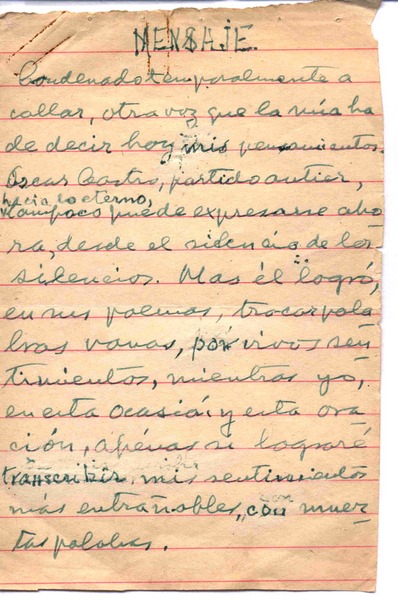 MENSAJE
Condenado temporalmente a
callar, otra voz que la mía ha
de decir hoy mis pensamientos.
Oscar Castro, partido antier,
hacia lo eterno,
tampoco puede expresarse aho
ra, desde el silencio de los
silencios. Mas él logró,
en sus poemas, trocar pala
bras vanas, por vivos sen
timientos, mientras yo,
en esta ocasión y esta ora
ción, apenas si lograré
transcribir, mis sentimientos
más entrañables, con muer
tas palabras.